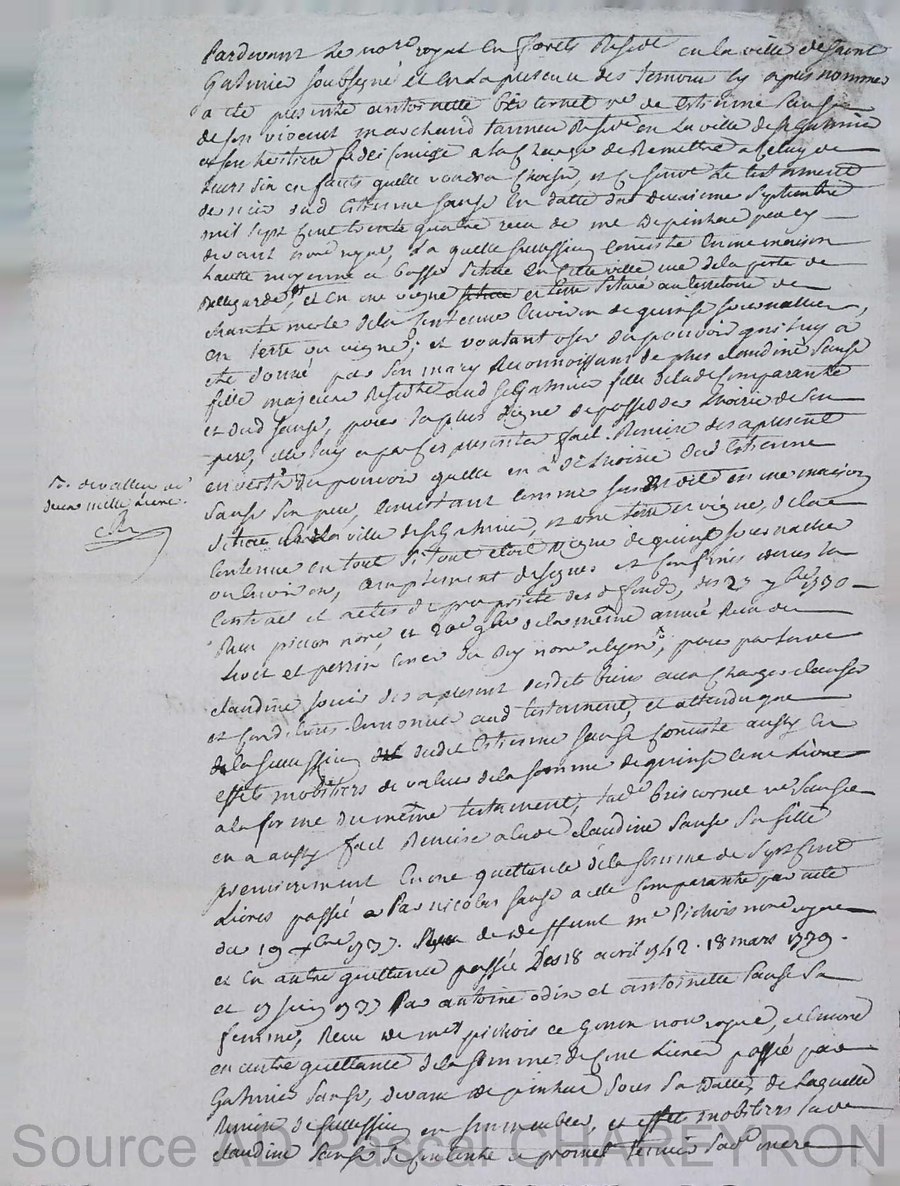 Pardevant le no.re royal en forets reside en la ville de saint
Galmier soubsigné et en la presence des temoins cy apres nommes
a eté presente antoinette biscornet v.e de estienne sauze
de son vivant marchand tanneur reside en la ville de st Galmier
et son heritiere fideicomise a la charge de remettre a celuy de
leurs enfants quelle voudra choisir, et ce suivt le testament
de dud estienne sauze en datte du deuxieme septembre
mil sept cent trente quatre recu de me Depinhac par cy
devant no.re royal, la quelle succession consiste en une maison
haute moyenne et basse située en cette ville rue de la porte de
Bellegarde, et en une vigne et terre situé au territoire de
chantemerle de la contenue environ de quinze journallier
en terre ou vigne; et voulant user du pouvoir qui luy a
eté donné par son mary reconnoissant de plus claudine sauze
fille majeure reside aud st Galmier fille de lad comparante
et dud sauze, pour la plus digne de posseder lhoirie de son
pere, elle luy a par ces presentes fait remise des a present
en vertu du pouvoir quelle en a de lhoirie dud estienne
sauze son pere, consistant comme sus est dit en une maison
située en la ville de st Galmier, et une terre et vigne, de la
contenue en tout de quinze journallier
ou environ, amplement designes et confinés dans les
contrats et actes de propriete des d fonds, des 23 1730
recu picon no.re et 20e de la meme année recu de
et perrin no.re a lyon, pour par lad
claudine jouir des a present desdits biens aux charges clauses
et conditions enoncé aud testament, et attendu que
la succession dudit estienne sauze consiste aussy en
effets mobiliers de valeur de la somme de quinze cent livres
a la forme du même testament, lad biscornet ve sauze
en a aussy fait remise a lad claudine sauze sa fille
premierement en une quittance de la somme de sept cent
livres passée a par nicolas sauze a elle comparante par acte
du 19 1737. de deffunt me Pichois no.re royal
et en autre quittance passée des 18 avril 1742. 18 mars 1739.
et 17 juin 1737 par antoine odin et antoinette sauze sa
femme, recu de mes pichois et Gonon no.re royal, et encore
en autre quittance de la somme de cent livres passée par
Galmier sauze, devant depinhac sous sa datte, de laquelle
remise de succession en immeubles, et effets mobiliers lad
claudine sauze se contente et promet tenir lad mere
+. de valleur de
deux mille livres.
Source AD Pascal CHAREYRON